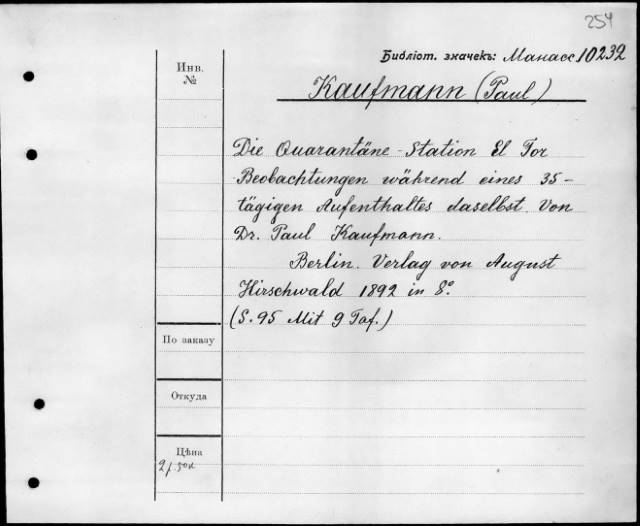 254
Библіот. значекъ: Манасс 10232
Инв.
№
Kaufmann (Paul)
Die Quarantäne-Station El Tor
Beobachtungen während eines 35-
tägigen Aufenthaltes daselbst. Von
Dr. Paul Kaufmann.
Berlin. Verlag von August
Hirschwald 1892 in 8º
(S. 95 Mit 9 Taf.)
По заказу
Откуда
Цѣна
2 р. 50 к